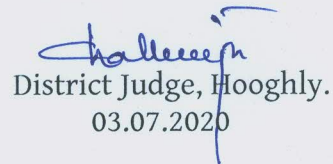 District Judge, Hooghly.
03.07.2020